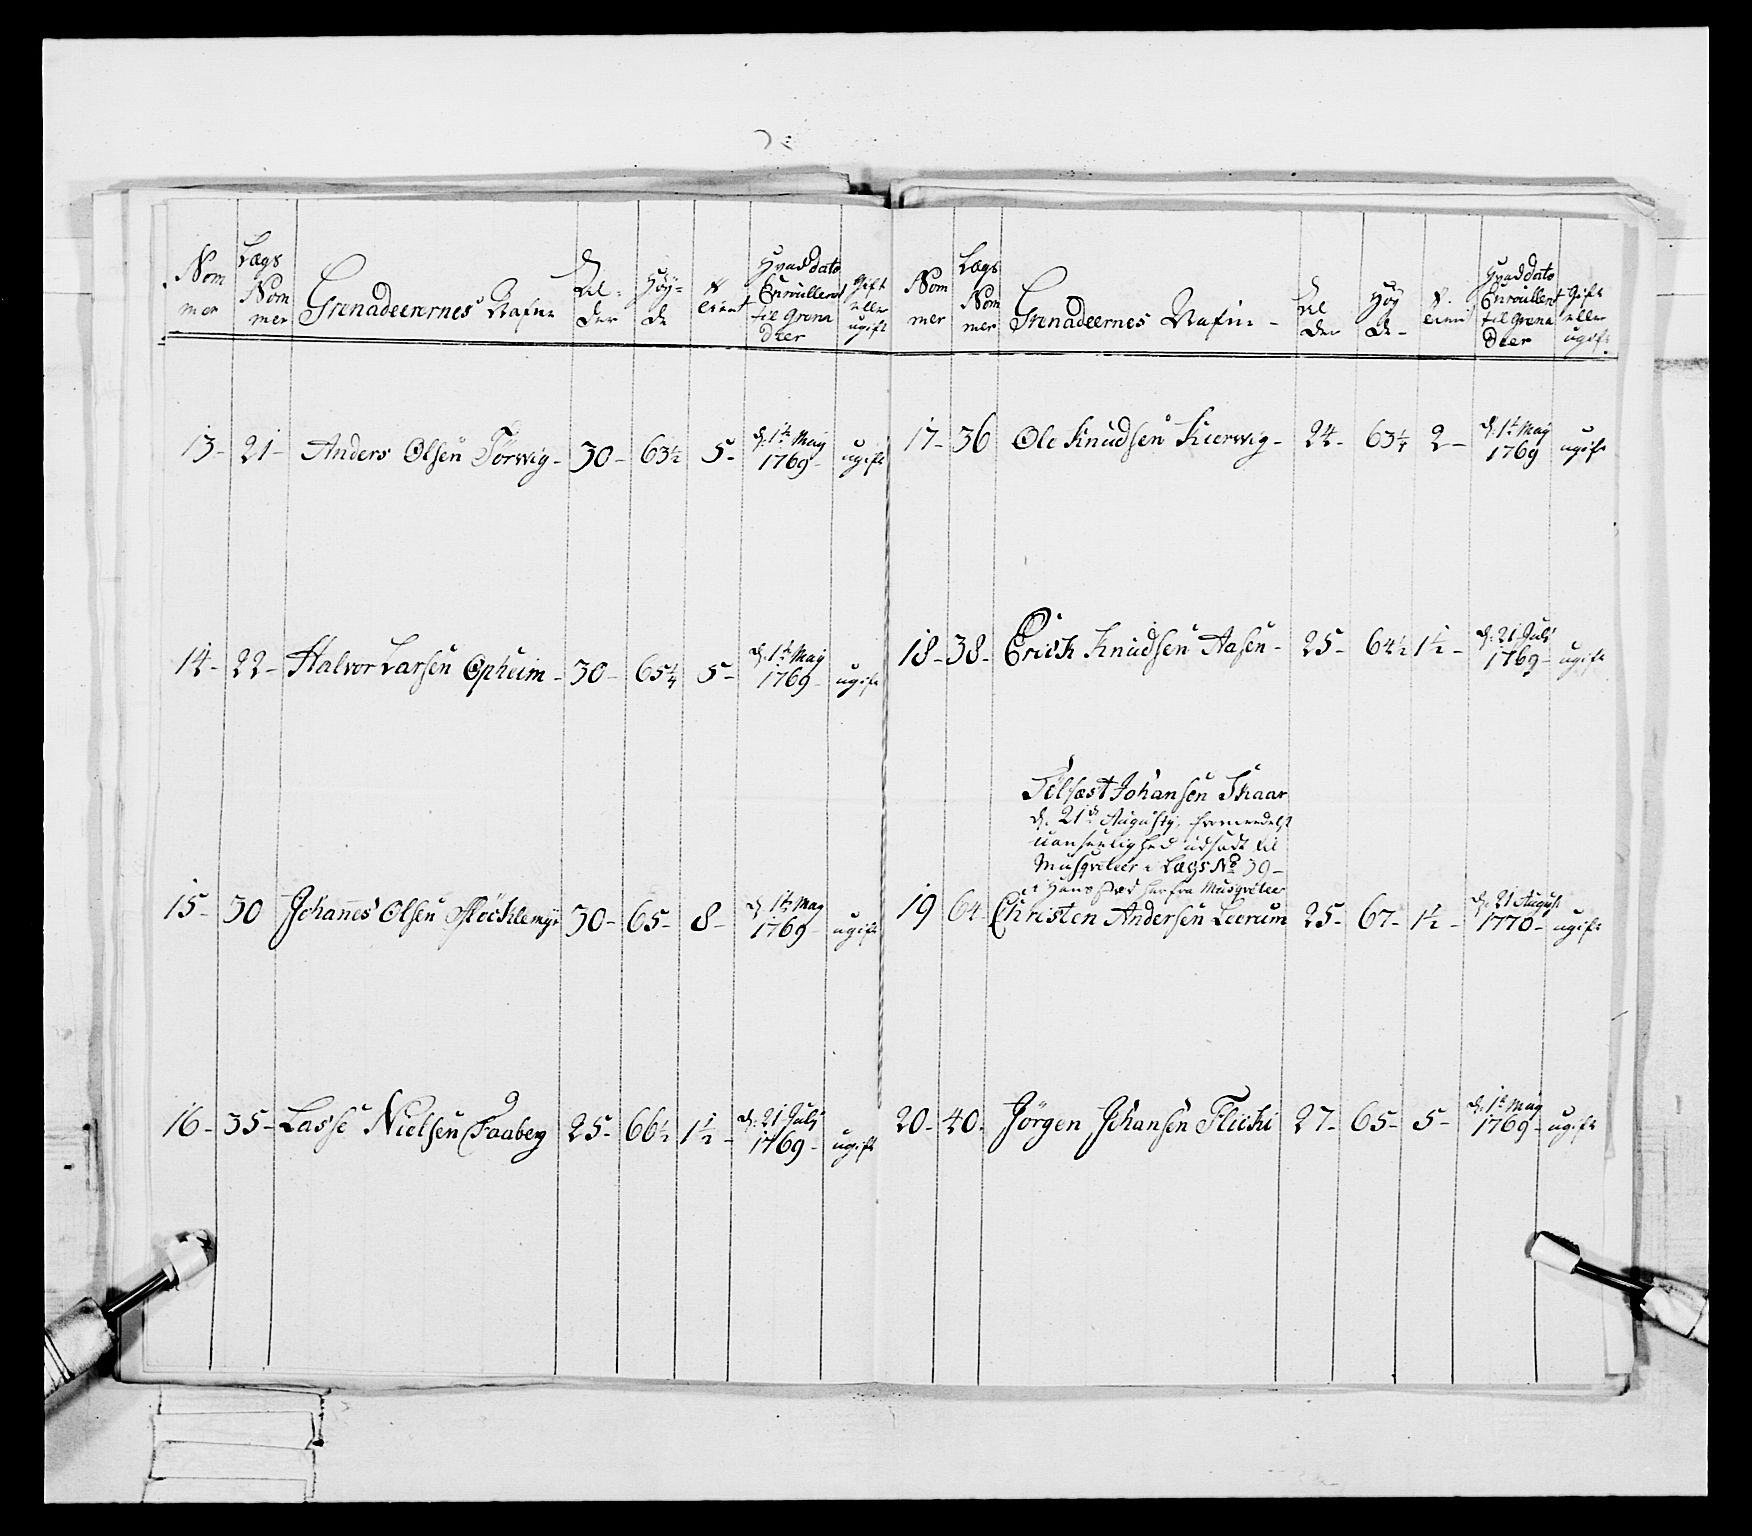 Nom
mer
Lægs
Nom
mer
Grenadeerernes Nafne
Al-
der
Höy-
de
tient
Hvad dato
Enroullert
til Grena
deer
Gift
eller
ugift
13- 21- Anders Olsen Törwig- 30- 63½ 5- d. 1te May 1769- ugift
14- 22- Halvor Larsen Opheim- 30- 65¼ 5- d. 1te May 1769- ugift
15- 30 Johannes Olsen 30- 65- 8- d. 1te May 1769- ugift
16- 35- Lasse Nielsen Faaberg 25- 66½ 1½- d. 21 Julj 1769- ugift
Nom
mer
Lægs
Nom
mer
Grenadeernes Nafne-
Al
der
Höy
de-
tient
Hvad dato
Enroullert
til Grena
deer
Gift
eller
ugift
17- 36 Ole Knudsen Kierwig- 24- 63¼ 2- d. 1te May 1769 ugift
18- 38- Erich Knudsen Aasen- 25- 64½ 1½- d. 21 Julj 1769- ugift
Johansen Skaar
d. 21de Augustj, formedelst
uanseelighed udsadt til
Musqveteer i Lægs No 39-
i Hans sted herfra Musqveteer
19 64- Christen Andersen Leerum 25- 67- 1½- d. 21 August 1770- ugift
20- 40- Jörgen Johansen 27- 65- 5- d. 1te May 1769- ugift